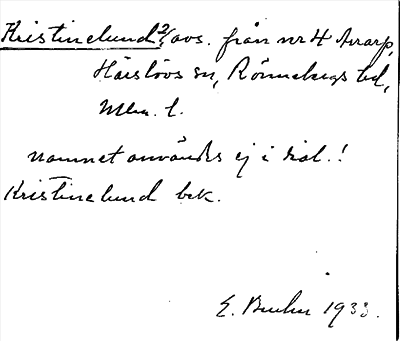 Kristinelund 2/ avs. från nr 4 Arrarp,
Härslövs sn, Rönnebergs hd,
Mlm. l.
namnet användes ej i dial.!
Kristinelund bek.
E. 1933.